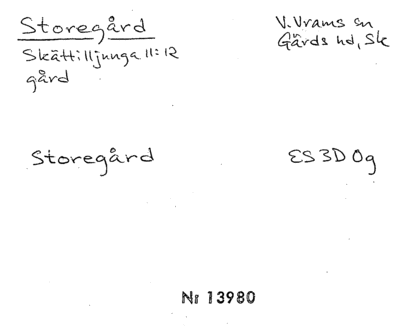 Storegård
V. Vrams sn
Skättilljunga 11:12
Gärds hd, Sk
gård
Storegård
ES 3D 0g
Nr 13980